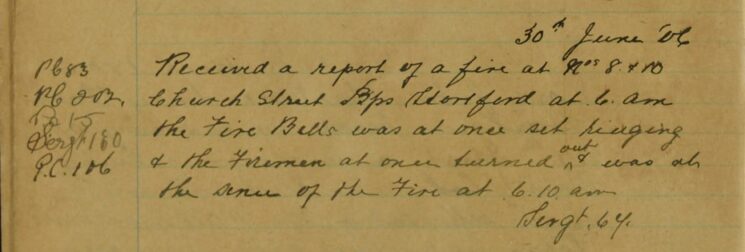 30th June '06
PC 83
PC 202.
Sergt 180
P.C. 106
Received a report of a fire at Nos 8 & 10
Church Street Bps Stortford at 6. am
the Fire Bells was at once set ringing
& the Firemen at once turned out & was at
the scene of the Fire at 6.10 am
Sergt. 64.